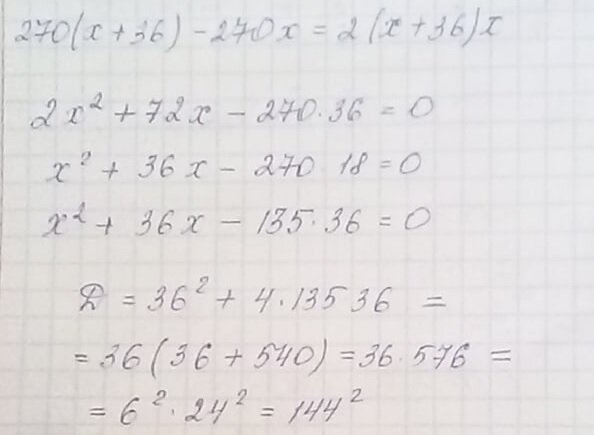 270(x+36)-270x=2(x+36)x
2x²+72x-270·36=0
x²+36x-270 18=0
x²+36x-135·36=0
D=36²+4·135 36=
=36(36+540)=36·576=
=6²·24²=144²